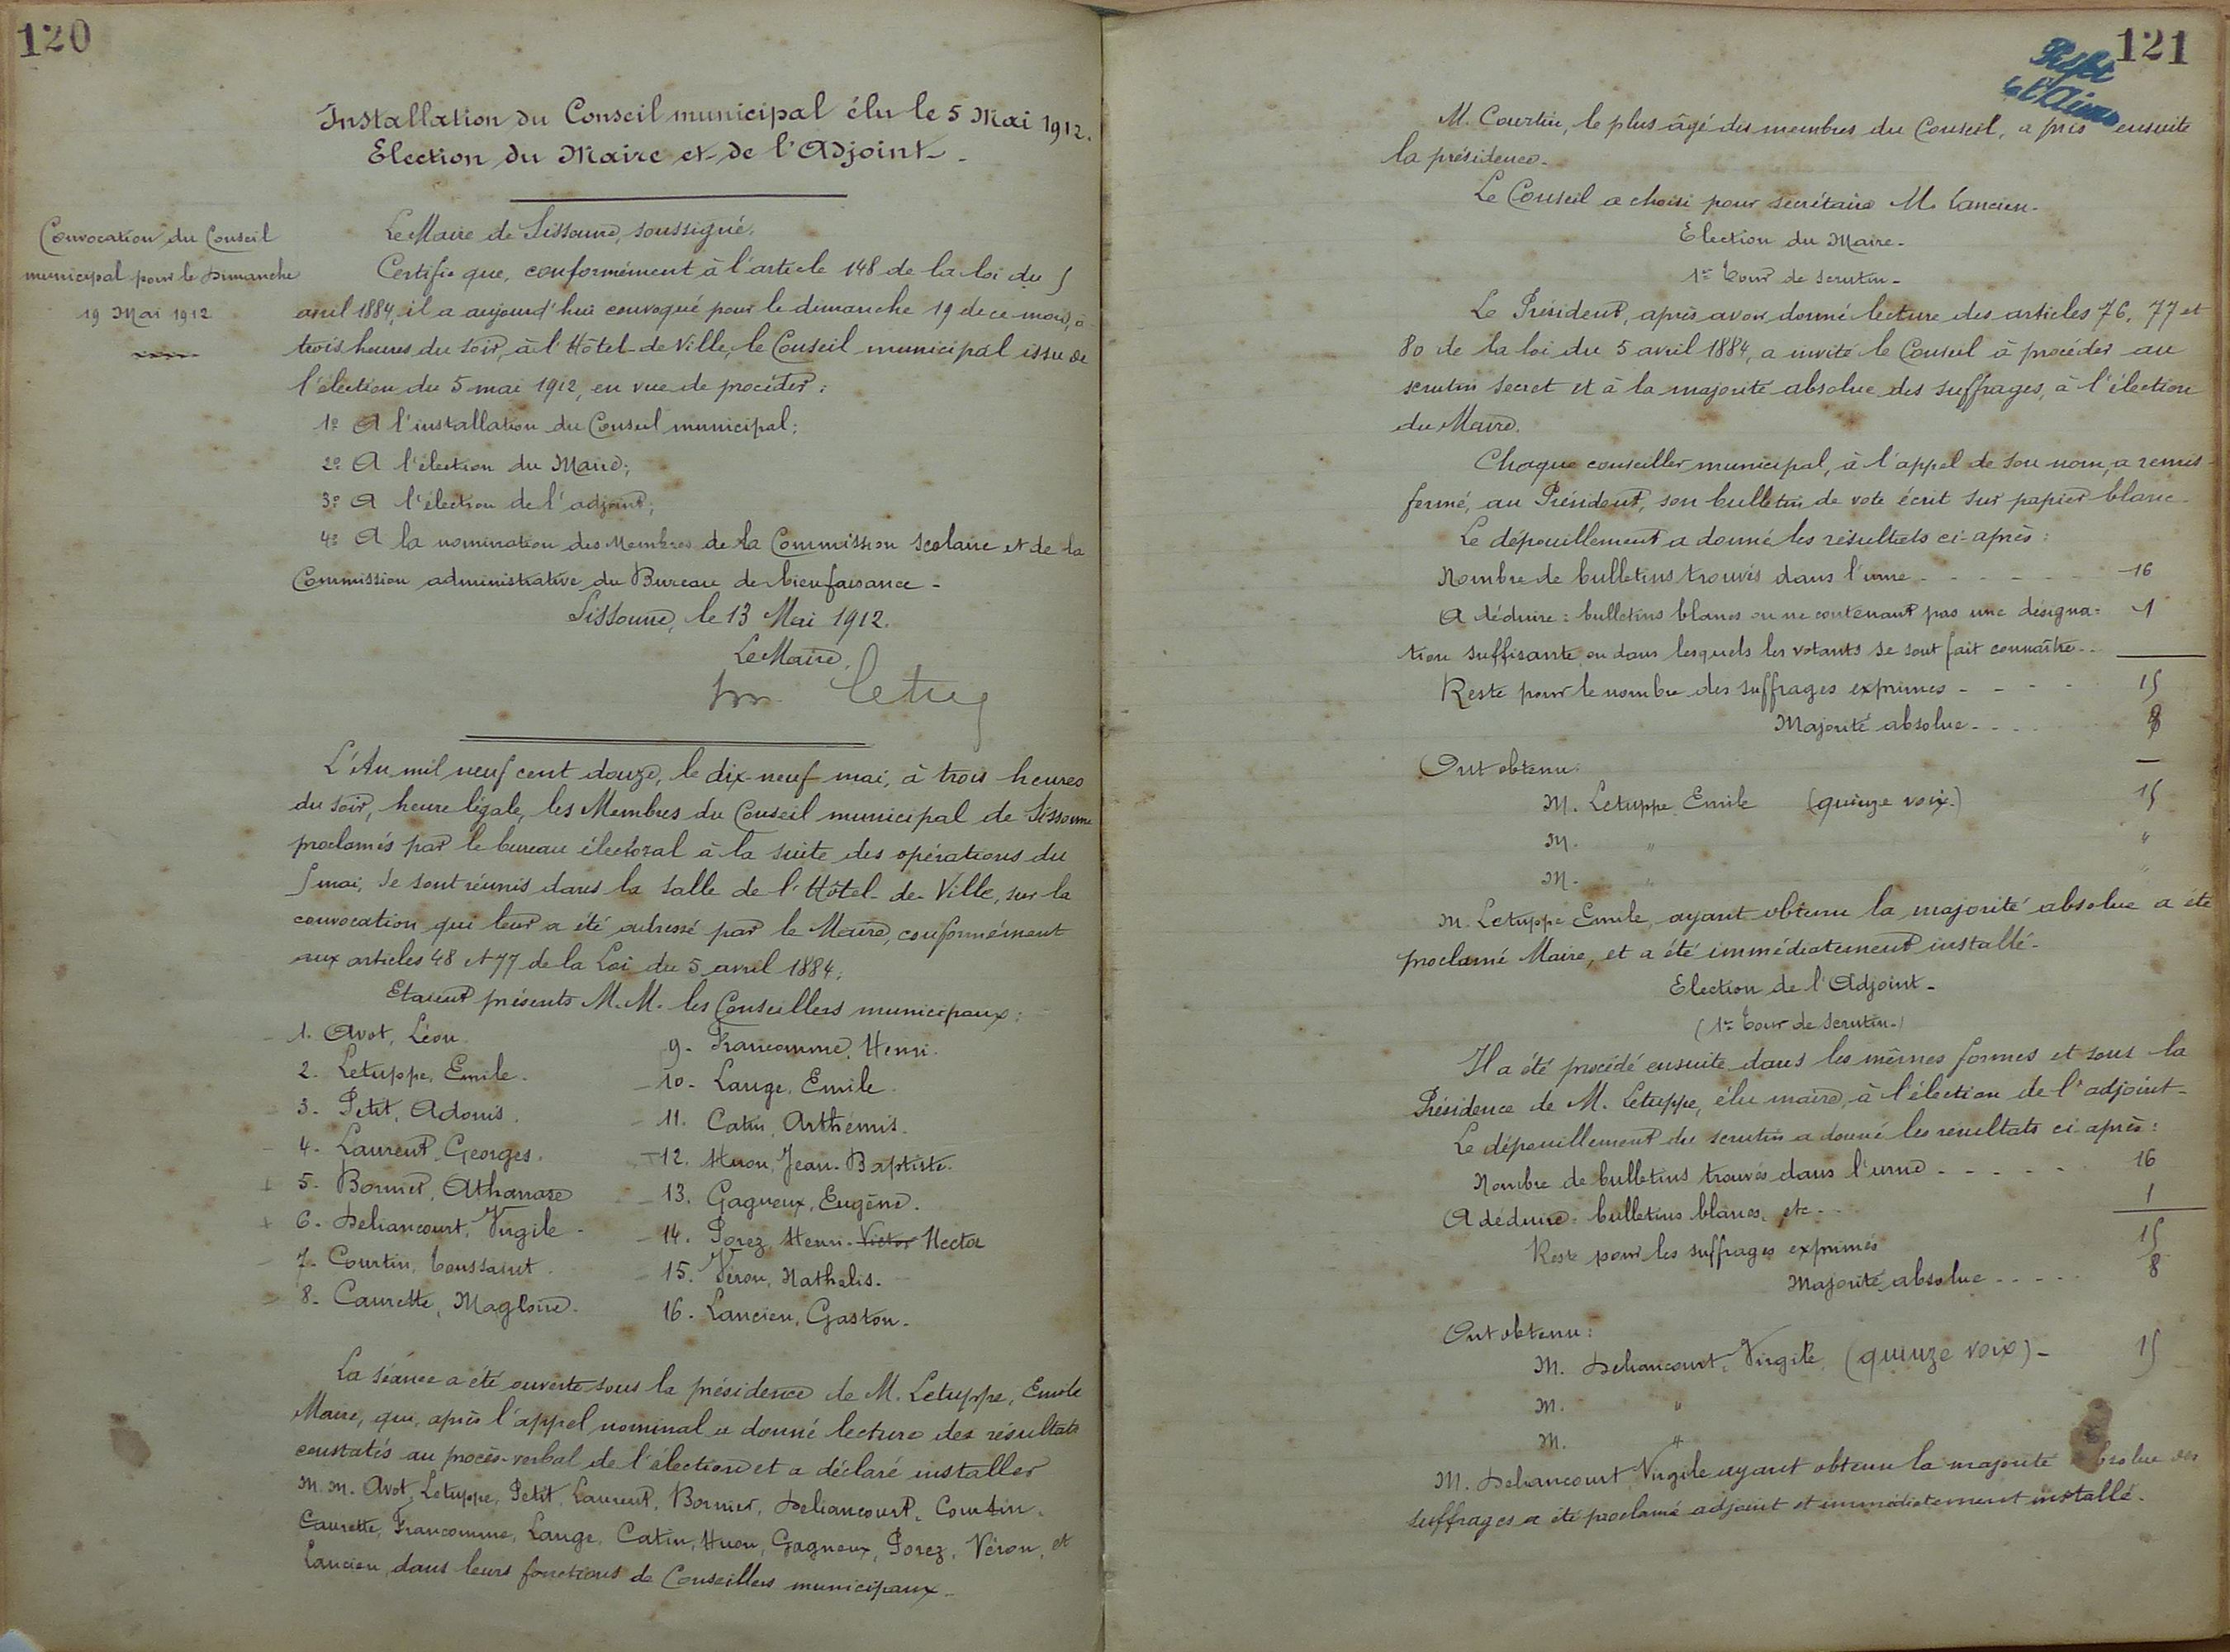 120
Installation du Conseil municipal élu le 5 Mai 1912.
Election du Maire et de l'Adjoint.
Convocation du Conseil
municipal pour le Dimanche
19 Mai 1912
Le Maire de Sissonne, soussigné,
Certifie que, conformément à l'article 148 de la loi du 5
avril 1884, il a aujourd'hui convoqué pour le dimanche 19 de ce mois, à
trois heures du soir, à l'Hôtel-de-Ville, le Conseil municipal issu de
l'élection du 5 mai 1912, en vue de procéder:
1º A l'installation du Conseil municipal;
2º A l'élection du Maire;
3º A l'élection de l'adjoint;
4º A la nomination des Membres de la Commission scolaire et de la
Commission administrative du Bureau de bienfaisance -
Sissonne, le 13 Mai 1912.
Le Maire,
L'An mil neuf cent douze, le dix-neuf mai, à trois heures
du soir, heure légale, les Membres du Conseil municipal de Sissonne
proclamés par le bureau électoral à la suite des opérations du
5 mai, se sont réunis dans la salle de l'Hôtel-de-Ville, sur la
convocation qui leur a été adressé par le Maire, conformément
aux articles 48 et 77 de la Loi du 5 avril 1884;
Etaient présents M.M. les Conseillers municipaux:
1. Avot, Léon.
2. Letuppe, Emile.
3. Petit, Adonis.
4. Laurent, Georges.
5. Bornier, Athanase
6. Deliancourt, Virgile -
7. Courtin, Toussaint.
8. Caurette, Magloire.
9. Francomme, Henri.
10. Lange, Emile.
11. Catin, Arthémis.
12. Huon, Jean-Baptiste.
13. Gagneux, Eugène.
14. Porez, Henri-Victor Hector
15. Véron, Nathalis.
16. Lancien, Gaston.
La séance a été ouverte sous la présidence de M. Letuppe, Emile
Maire, qui, après l'appel nominal a donné lecture des résultats
constatés au procès-verbal de l'élection et a déclaré installer
M.M. Avot, Letuppe, Petit, Laurent, Bornier, Deliancourt, Courtin,
Caurette, Francomme, Lange, Catin, Huon, Gagneux, Porez, Véron, et
Lancien, dans leurs fonctions de Conseillers municipaux -
121
M. Courtin, le plus âgé des membres du Conseil, a pris ensuite
la présidence.
Le Conseil a choisi pour secrétaire M. Lancien.
Election du Maire.
1er Tour de scrutin.
Le Président, après avoir donné lecture des articles 76, 77 et
80 de la loi du 5 avril 1884, a invité le Conseil à procéder au
scrutin secret et à la majorité absolue des suffrages, à l'élection
du Maire.
Chaque conseiller municipal, à l'appel de son nom, a remis
fermé, au Président, son bulletin de vote écrit sur papier blanc.
Le dépouillement a donné les résultats ci-après:
Nombre de bulletins trouvés dans l'urne - - - - - 16
A déduire: bulletins blancs ou ne contenant pas une désigna= 1
tion suffisante, ou dans lesquels les votants se sont fait connaître - -
Reste pour le nombre des suffrages exprimés - - - - 15
Majorité absolue - - - 8
Ont obtenu:
M. Letuppe Emile (quinze voix.) 15
M. " "
M. " "
M. Letuppe Emile, ayant obtenu la majorité absolue a été
proclamé Maire, et a été immédiatement installé.
Election de l'Adjoint.
(1er Tour de scrutin.)
Il a été procédé ensuite dans les mêmes formes et sous la
Présidence de M. Letuppe, élu maire, à l'élection de l'adjoint.
Le dépouillement du scrutin a donné les résultats ci-après:
Nombre de bulletins trouvés dans l'urne - - - - - 16
A déduire: bulletins blancs, etc - - 1
Reste pour les suffrages exprimés 15
Majorité absolue - - - - - 8
Ont obtenu:
M. Deliancourt, Virgile, (quinze voix) - 15
M. "
M. "
M. Deliancourt Virgile ayant obtenu la majorité absolue des
suffrages a été proclamé adjoint et immédiatement installé.